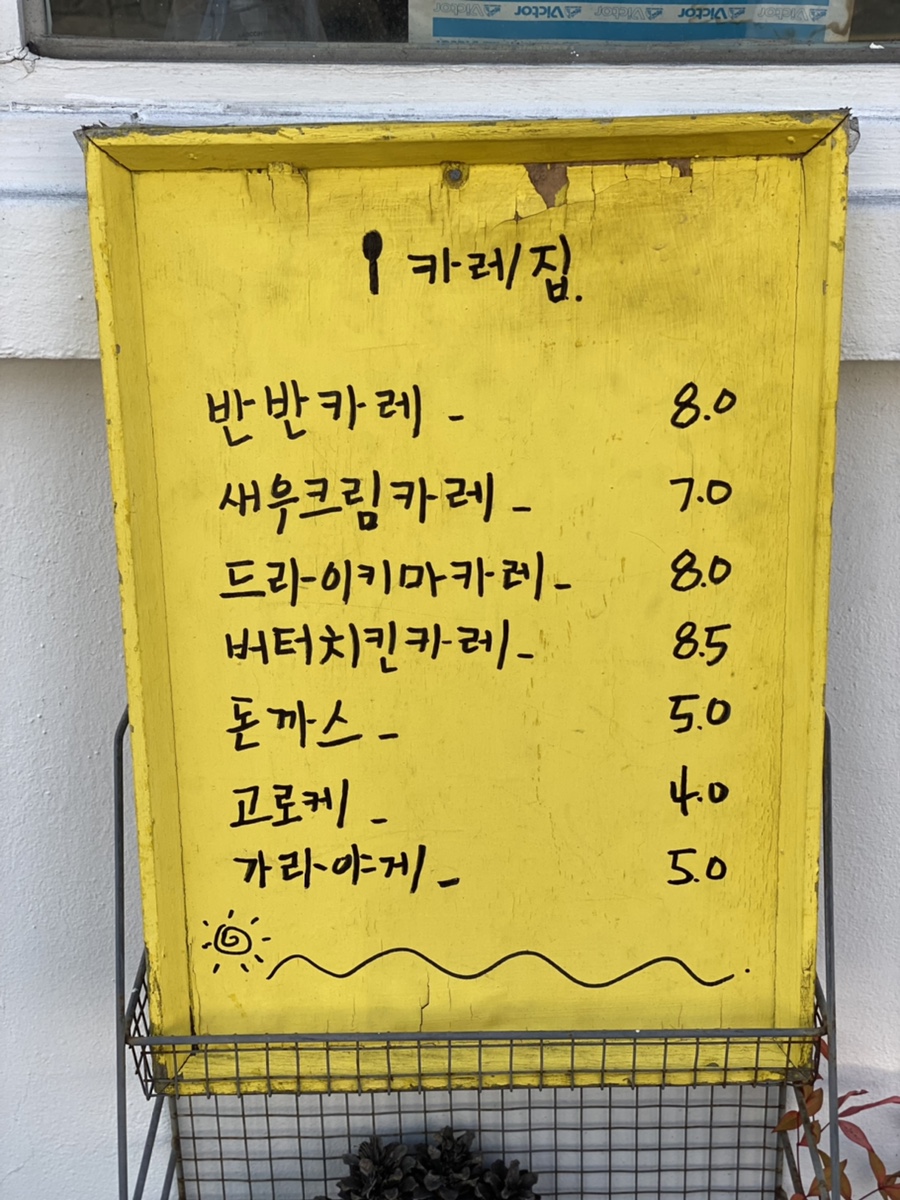 Victor Victor Victor Victor
카레집.
반반카레 - 8.0
새우크림카레 - 7.0
드라이키마카레 - 8.0
버터치킨카레 - 8.5
돈까스 - 5.0
고로케 - 4.0
가라야게 - 5.0